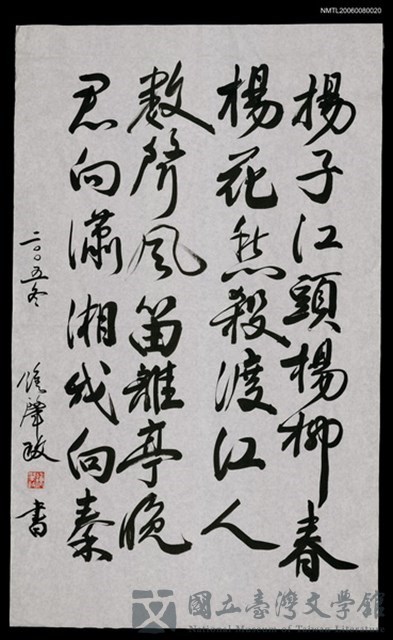 揚子江頭楊柳春
楊花愁殺渡江人
數聲風笛離亭晚
君向瀟湘我向秦
二〇〇五冬
陳肇政
書
NMTL20060080020
國立臺灣文學館
National Museum of Taiwan Literature